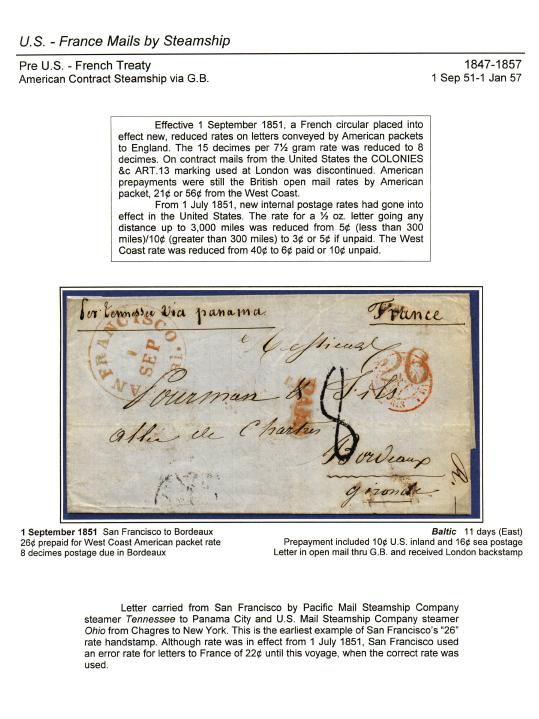 U.S. - France Mails by Steamship
Pre U.S. - French Treaty
1847-1857
American Contract Steamship via G.B.
1 Sep 51-1 Jan 57
Effective 1 September 1851, a French circular placed into
effect new, reduced rates on letters conveyed by American packets
to England. The 15 decimes per 7½ gram rate was reduced to 8
decimes. On contract mails from the United States the COLONIES
&c ART.13 marking used at London was discontinued. American
prepayments were still the British open mail rates by American
packet, 21¢ or 56¢ from the West Coast.
From 1 July 1851, new internal postage rates had gone into
effect in the United States. The rate for a ½ oz. letter going any
distance up to 3,000 miles was reduced from 5¢ (less than 300
miles)/10¢ (greater than 300 miles) to 3¢ or 5¢ if unpaid. The West
Coast rate was reduced from 40¢ to 6¢ paid or 10¢ unpaid.
Per Tennessee Via panama
France
SAN FRANCISCO
1
SEP
26
Messieurs
Pourman & Fils
PAID
8
Allée de Chartres
Bordeaux
gironde
1 September 1851 San Francisco to Bordeaux
26¢ prepaid for West Coast American packet rate
8 decimes postage due in Bordeaux
Baltic 11 days (East)
Prepayment included 10¢ U.S. inland and 16¢ sea postage
Letter in open mail thru G.B. and received London backstamp
Letter carried from San Francisco by Pacific Mail Steamship Company
steamer Tennessee to Panama City and U.S. Mail Steamship Company steamer
Ohio from Chagres to New York. This is the earliest example of San Francisco's "26"
rate handstamp. Although rate was in effect from 1 July 1851, San Francisco used
an error rate for letters to France of 22¢ until this voyage, when the correct rate was
used.